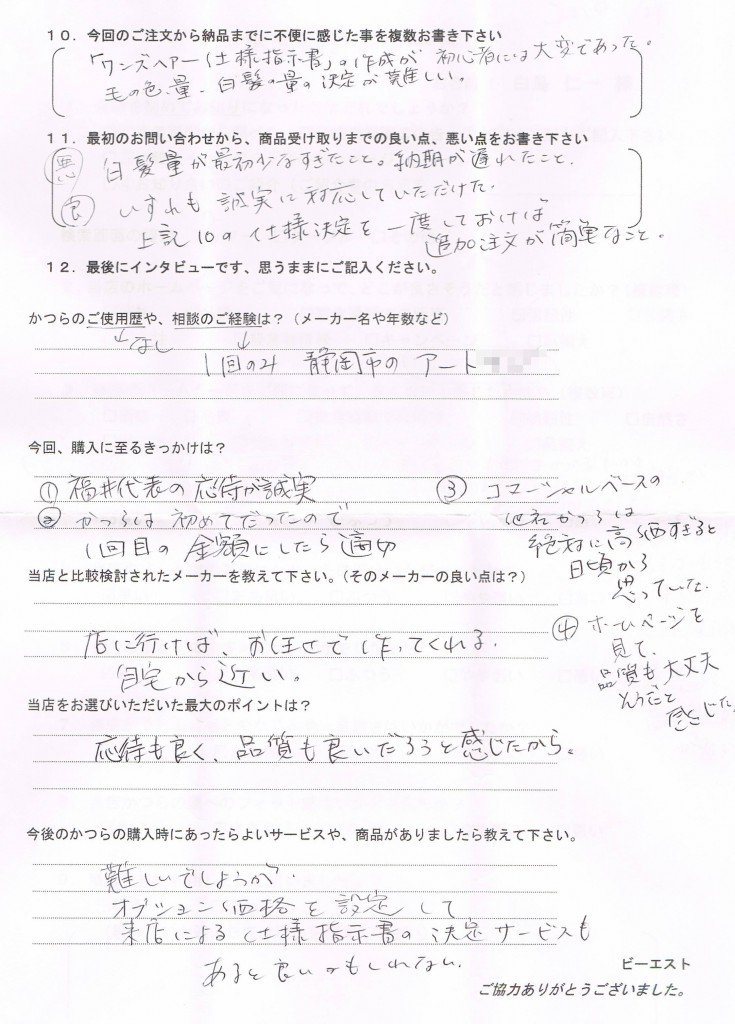 10．今回のご注文から納品までに不便に感じた事を複数お書き下さい
「ワンズヘアー仕様指示書」の作成が初心者には大変であった。
毛の色、量、白髪の量の決定が難しい。
11．最初のお問い合わせから、商品受け取りまでの良い点、悪い点をお書き下さい
悪 白髪量が最初少なすぎたこと。納期が遅れたこと．
いずれも誠実に対応していただけた．
良 上記10の仕様決定を一度しておけば
追加注文が簡単なこと。
12．最後にインタビューです、思うままにご記入ください。
かつらのご使用歴や、相談のご経験は？（メーカー名や年数など）
なし
1回のみ 静岡市の アート
今回、購入に至るきっかけは？
① 福井代表の応待が誠実
② かつらは初めてだったので
1回目の金額にしたら適切
③ コマーシャルベースの
他社かつらは
絶対に高価すぎると
日頃から
思っていた
④ ホームページを
見て、
品質も大丈夫
そうだと
感じた
当店と比較検討されたメーカーを教えて下さい。（そのメーカーの良い点は？）
店に行けば、お任せで作ってくれる．
自宅から近い。
当店をお選びいただいた最大のポイントは？
応待も良く、品質も良いだろうと感じたから。
今後のかつらの購入時にあったらよいサービスや、商品がありましたら教えて下さい。
難しいでしょうが．
オプション価格を設定して
来店による仕様指示書の決定サービスも
あると良いかもしれない．
ビーエスト
ご協力ありがとうございました。